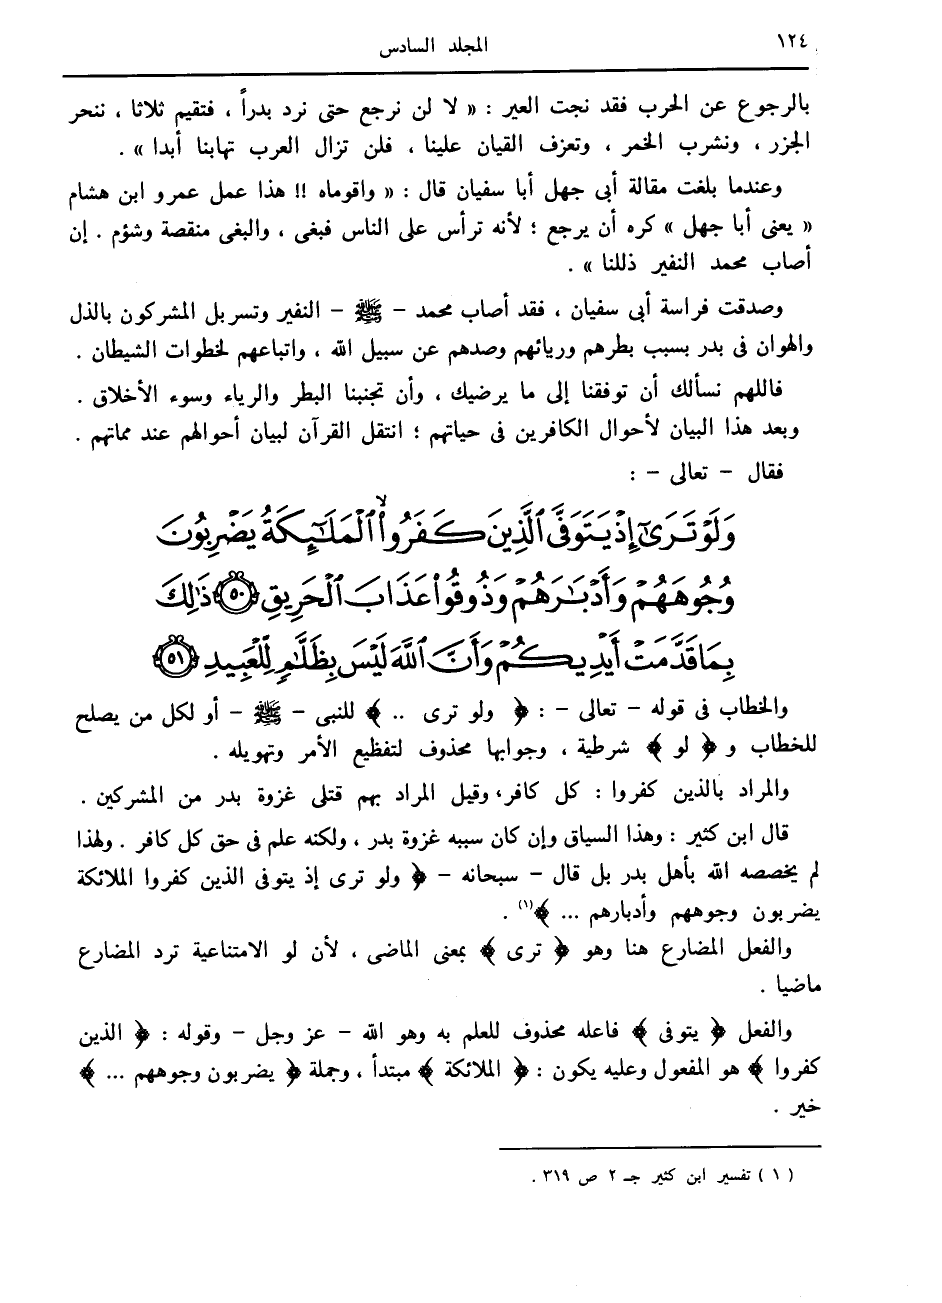 ١٢٤
المجلد السادس
بالرجوع عن الحرب فقد نجت العير : « لا لن نرجع حتى نرد بدراً ، فتقيم ثلاثا ، ننحر
الجزر ، ونشرب الخمر ، وتعزف القيان علينا ، فلن تزال العرب تهابنا أبدا » .
وعندما بلغت مقالة أبى جهل أبا سفيان قال : « واقوماه !! هذا عمل عمرو ابن هشام
« يعنى أبا جهل » كره أن يرجع ؛ لأنه ترأس على الناس فبغى ، والبغى منقصة وشؤم . إن
أصاب محمد النفير ذللنا » .
وصدقت فراسة أبى سفيان ، فقد أصاب محمد - ﷺ - النفير وتسربل المشركون بالذل
والهوان فى بدر بسبب بطرهم وريائهم وصدهم عن سبيل الله ، واتباعهم لخطوات الشيطان .
فاللهم نسألك أن توفقنا إلى ما يرضيك ، وأن تجنبنا البطر والرياء وسوء الأخلاق .
وبعد هذا البيان لأحوال الكافرين فى حياتهم ؛ انتقل القرآن لبيان أحوالهم عند مماتهم .
فقال - تعالى - :
وَلَوْ تَرَىٰٓ إِذْ يَتَوَفَّى ٱلَّذِينَ كَفَرُوا۟ ۙ ٱلْمَلَـٰٓئِكَةُ يَضْرِبُونَ
وُجُوهَهُمْ وَأَدْبَـٰرَهُمْ وَذُوقُوا۟ عَذَابَ ٱلْحَرِيقِ ﴿٥٠﴾ ذَٰلِكَ
بِمَا قَدَّمَتْ أَيْدِيكُمْ وَأَنَّ ٱللَّهَ لَيْسَ بِظَلَّـٰمٍ لِّلْعَبِيدِ ﴿٥١﴾
والخطاب فى قوله - تعالى - : ﴿ ولو ترى .. ﴾ للنبى - ﷺ - أو لكل من يصلح
للخطاب و ﴿ لو ﴾ شرطية ، وجوابها محذوف لتفظيع الأمر وتهويله .
والمراد بالذين كفروا : كل كافر، وقيل المراد بهم قتلى غزوة بدر من المشركين .
قال ابن كثير : وهذا السياق وإن كان سببه غزوة بدر ، ولكنه علم فى حق كل كافر . ولهذا
لم يخصصه الله بأهل بدر بل قال - سبحانه - ﴿ ولو ترى إذ يتوفى الذين كفروا الملائكة
يضربون وجوههم وأدبارهم ... ﴾(١) .
والفعل المضارع هنا وهو ﴿ ترى ﴾ بمعنى الماضى ، لأن لو الامتناعية ترد المضارع
ماضيا .
والفعل ﴿ يتوفى ﴾ فاعله محذوف للعلم به وهو الله - عز وجل - وقوله : ﴿ الذين
كفروا ﴾ هو المفعول وعليه يكون : ﴿ الملائكة ﴾ مبتدأ ، وجملة ﴿ يضربون وجوههم ... ﴾
خبر .
( ١ ) تفسير ابن كثير جـ ٢ ص ٣١٩ .